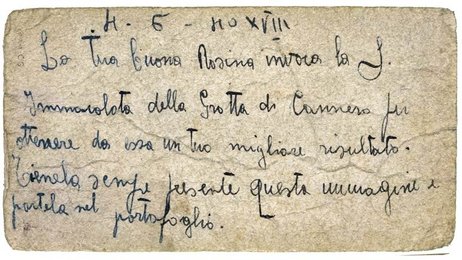 4 - 5 - 40 XVIII
La tua buona Rosina invoca la S.
Immacolata della Grotta di Cannero per
ottenere da essa un tuo migliore risultato.
Tienela sempre presente questa immagine e
portela nel portafoglio.